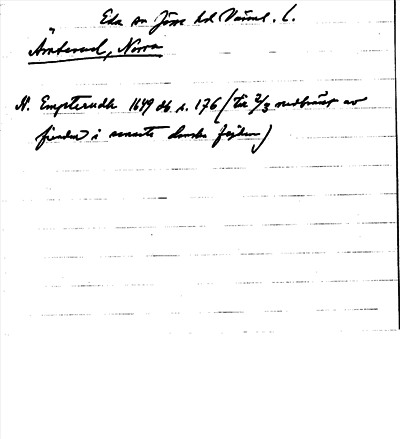 Eda sn Jösse hd Värml. l.
Ämterud, Norra
N. Empterudh 1649 db. s. 176 (till 2/3 nedbränt av
fienden i senaste danska fejden)